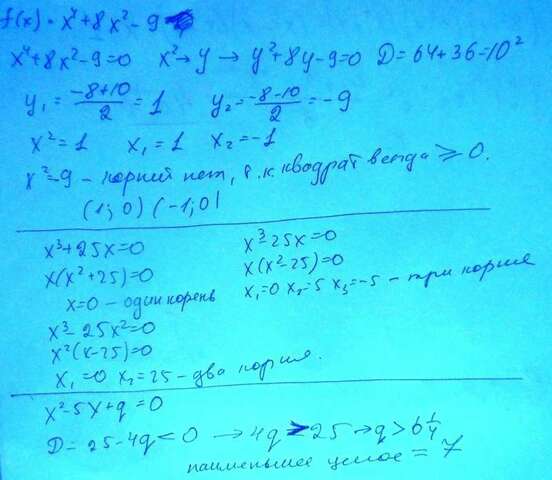 f(x) = x⁴+8x²-9
x⁴+8x²-9=0 x²→y → y²+8y-9=0 D=64+36=10²
y₁ = (-8+10)/2 = 1 y₂ = (-8-10)/2 = -9
x²=1 x₁=1 x₂=-1
x²=-9 - корний нет, т.к. квадрат всегда ≥ 0.
(1; 0) (-1; 0)
x³+25x=0
x(x²+25)=0
x=0 - один корень
x³-25x=0
x(x²-25)=0
x₁=0 x₂=5 x₃=-5 - три корня
x³-25x²=0
x²(x-25)=0
x₁=0 x₂=25 - два корня.
x²-5x+q=0
D=25-4q<0 → 4q>25 → q>6 1/4
наименьшее целое = 7